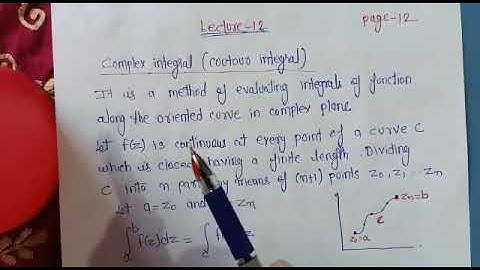 Lecture-12
page-12
Complex integral (coutouo integral)
It is a method of evaluating integrals of function
along the oriented curve in complex plane
let f(z) is continuous at every point of a curve C
which is closed having a finite length. Dividing
C into n part by means of (n+1) points z₀, z₁ .. zₙ
let a = z₀ and zₙ
∫ₐᵇ f(z)dz = ∫c f z
zₙ=b
c
z₀=a